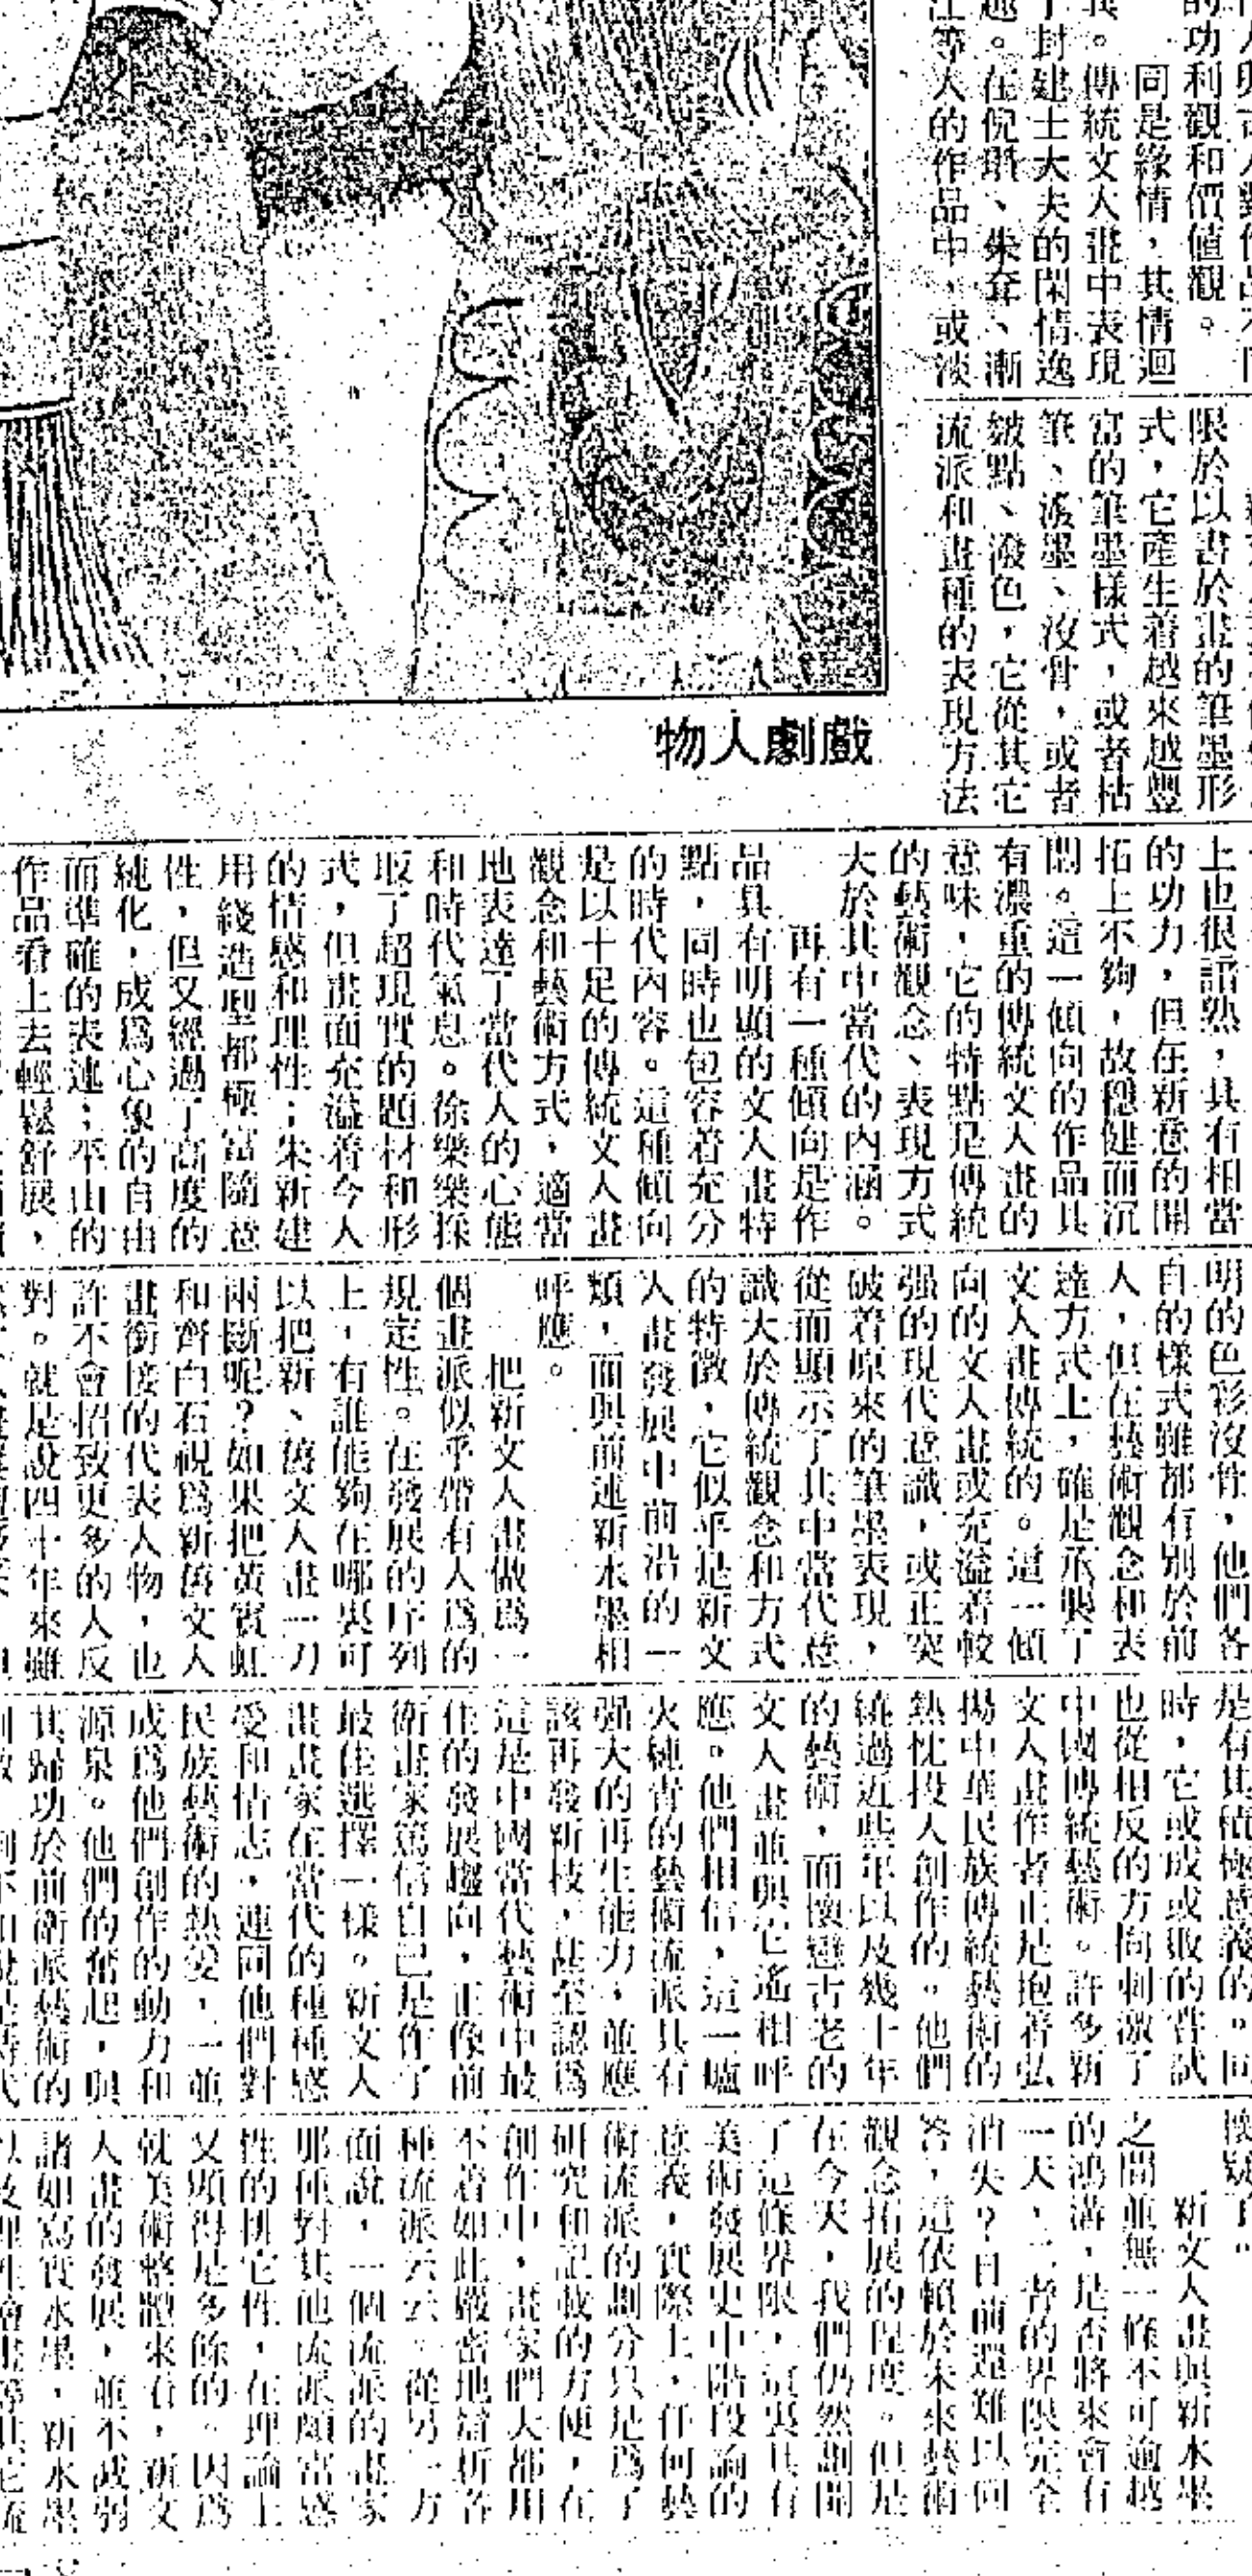 的功利觀和價值觀。
同是緣情，其情迥
傳統文人畫中表現
封建士大夫的閑情逸
。在倪瓚、朱耷、漸
江等人的作品中，或淡
限於以書於畫的筆墨形
式，它產生着越來越豐
富的筆墨樣式，或者枯
筆、潑墨、沒骨，或者
皴點、潑色，它從其它
流派和畫種的表現方法
物人劇戲
上也很諳熟，具有相當
的功力，但在新意的開
拓上不夠，故穩健而沉
悶。這一傾向的作品具
有濃重的傳統文人畫的
意味，它的特點是傳統
的藝術觀念、表現方式
大於其中當代的內涵。
再有一種傾向是作
品具有明顯的文人畫特
點，同時也包容着充分
的時代內容。這種傾向
是以十足的傳統文人畫
觀念和藝術方式，適當
地表達了當代人的心態
和時代氣息。徐樂樂採
取了超現實的題材和形
式，但畫面充溢着今人
的情感和理性；朱新建
用綫造型都極富隨意
性，但又經過了高度的
純化，成爲心象的自由
而準確的表達；平山的
作品看上去輕鬆舒展，
明的色彩沒骨，他們各
自的樣式雖都有別於前
人，但在藝術觀念和表
達方式上，確是承襲了
文人畫傳統的。這一傾
向的文人畫或充溢着較
强的現代意識，或正突
破着原來的筆墨表現，
從而顯示了其中當代意
識大於傳統觀念和方式
的特徵，它似乎是新文
人畫發展中前沿的一
類，而與前述新水墨相
呼應。
把新文人畫做爲一
個畫派似乎帶有人爲的
現定性。在發展的序列
上，有誰能夠在哪裏可
以把新、舊文人畫一刀
兩斷呢？如果把黃賓虹
和齊白石視爲新舊文人
畫銜接的代表人物，也
許不會招致更多的人反
對。就是說四十年來雖
是有其積極意義的。同
時，它或成或敗的嘗試
也從相反的方向刺激了
中國傳統藝術。許多新
文人畫作者正是抱着弘
揚中華民族傳統藝術的
熱忱投入創作的。他們
繞過近些年以及幾十年
的藝術，而懷戀古老的
文人畫並與它遙相呼
應。他們相信，這一爐
火純青的藝術流派具有
强大的再生能力，並應
該再發新枝，甚至認爲
這是中國當代藝術中最
佳的發展趨向，正像前
衛畫家篤信自己是作了
最佳選擇一樣。新文人
畫畫家在當代的種種感
受和情志，連同他們對
民族藝術的熱愛，一並
成爲他們創作的動力和
源泉。他們的奮起，與
其歸功於前衛派藝術的
懷疑了。
新文人畫與新水墨
之間並無一條不可逾越
的鴻溝，是否將來會有
一天，二者的界限完全
消失？目前還難以回
答，這依賴於未來藝術
觀念拓展的程度。但是
在今天，我們仍然劃開
了這條界限，這裏具有
美術發展史中階段論的
意義，實際上，任何藝
術流派的劃分只是爲了
研究和記載的方便，在
創作中，畫家們大都用
不着如此嚴密地富析各
種流派云云。從另一方
面說，一個流派的畫家
那種對其他流派頗富感
性的排它性，在理論上
又顯得是多餘的。因爲
就美術整體來看，新文
人畫的發展，並不減弱
諸如寫實水墨，新水墨